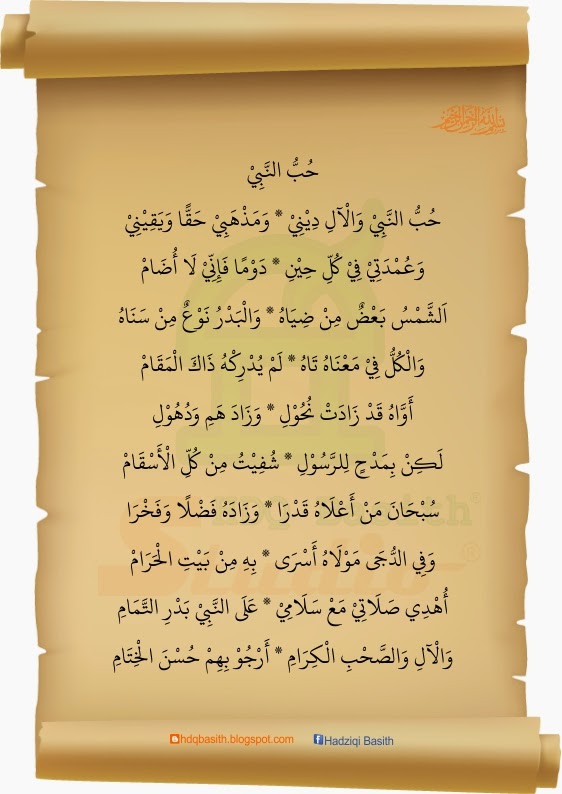 بسم الله الرحمن الرحيم
حُبُّ النَّبِيْ
حُبُّ النَّبِيْ وَالْآلِ دِيْنِيْ * وَمَذْهَبِيْ حَقًّا وَيَقِيْنِيْ
وَعُمْدَتِيْ فِيْ كُلِّ حِيْنِ * دَوْمًا فَإِنِّيْ لَا أُضَامْ
اَلشَّمْسُ بَعْضٌ مِنْ ضِيَاهُ * وَالْبَدْرُ نَوْعٌ مِنْ سَنَاهُ
وَالْكُلُّ فِيْ مَعْنَاهُ تَاهُ * لَمْ يُدْرِكْهُ ذَاكَ الْمَقَامْ
أَوَّاهُ قَدْ زَادَتْ نُحُوْلِ * وَزَادَ هَمِ وَذُهُوْلِ
لَكِنْ بِمَدْحٍ لِلرَّسُوْلِ * شُفِيْتُ مِنْ كُلِّ الْأَسْقَامْ
سُبْحَانَ مَنْ أَعْلَاهُ قَدْرَا * وَزَادَهُ فَضْلًا وَفَخْرَا
وَفِي الدُّجَى مَوْلَاهُ أَسْرَى * بِهِ مِنْ بَيْتِ الْحَرَامْ
أُهْدِي صَلَاتِيْ مَعْ سَلَامِيْ * عَلَى النَّبِيْ بَدْرِ التَّمَامِ
وَالْآلِ وَالصَّحْبِ الْكِرَامِ * أَرْجُوْ بِهِمْ حُسْنَ الْخِتَامِ
hdqbasith.blogspot.com Hadziqi Basith